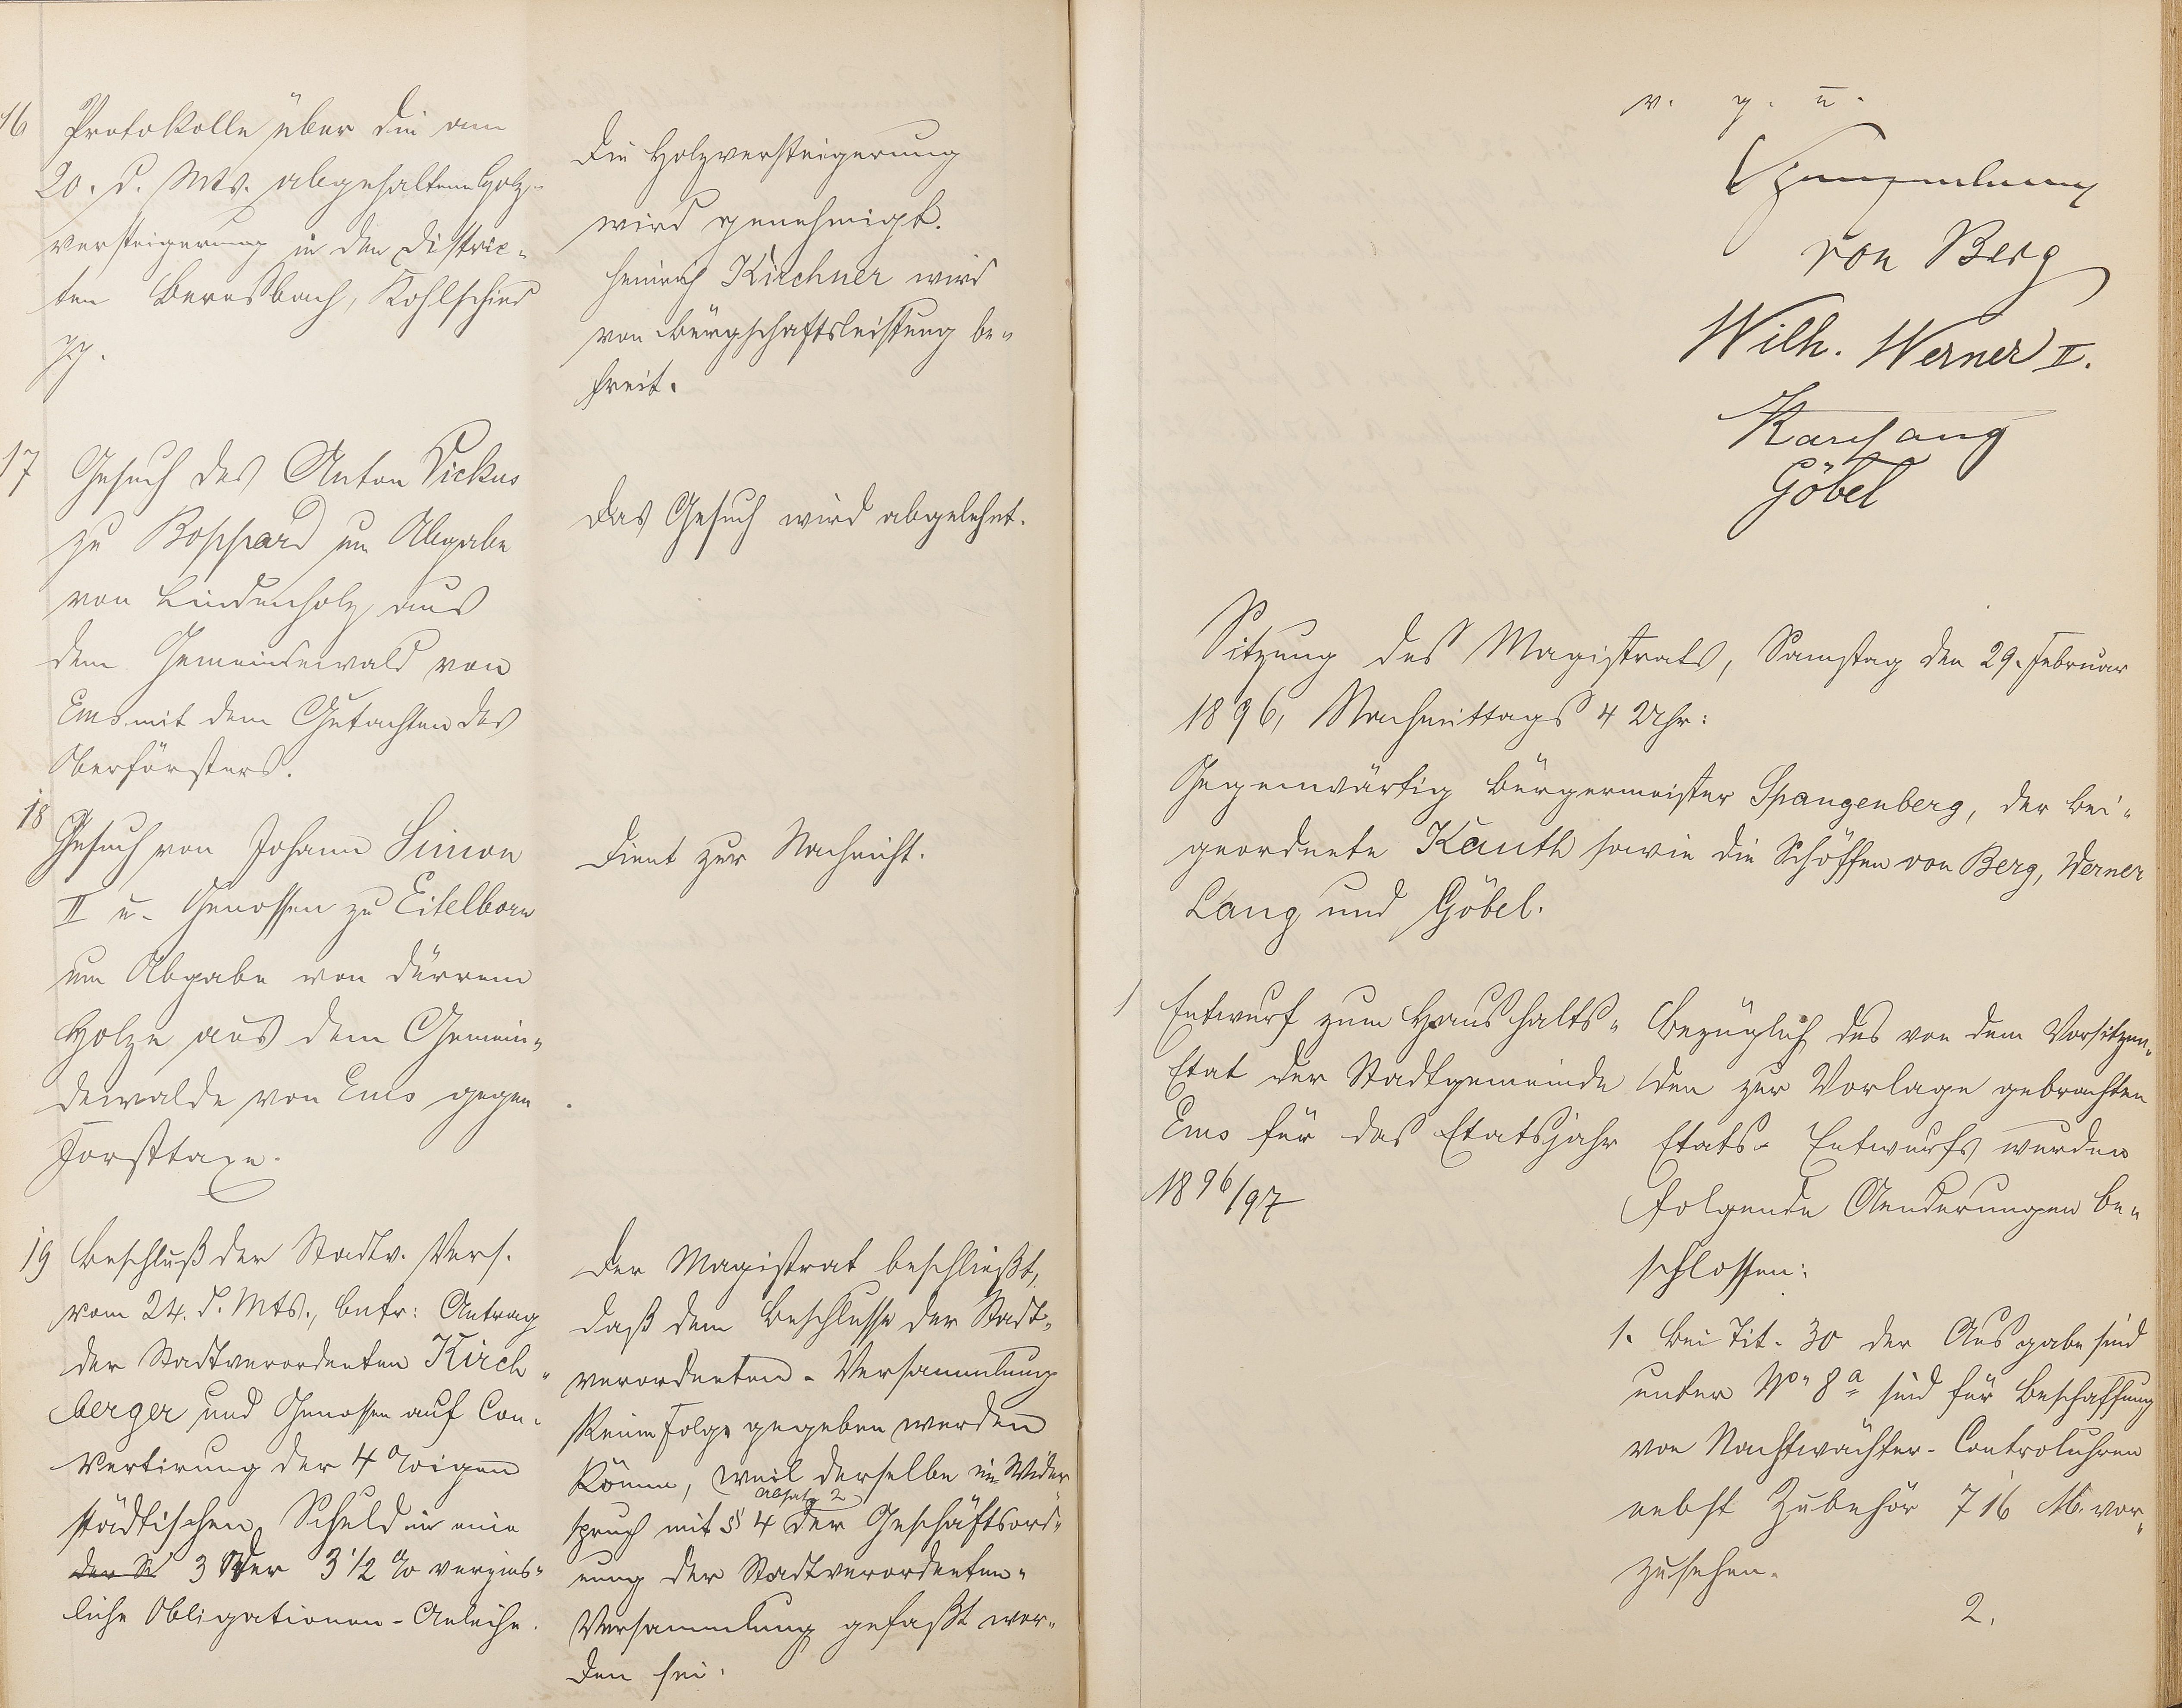 16 Protokolle über die am
20. d. Mts. abgehaltene Holz-
versteigerung in den Distric-
ten Bernsbach, Kohlschied
pp.
Die Holzversteigerung
wird genehmigt.
Heinrich Kirchner wird
von Bürgschaftsleistung be-
freit.
17 Gesuch des Anton Vickus
zu Boppard um Abgabe
von Lindenholz aus
dem Gemeindewald von
Ems mit dem Gutachten des
Oberförsters.
Das Gesuch wird abgelehnt.
18 Gesuch von Johann Simon
II u. Genossen zu Eitelborn
um Abgabe von dürrem
Holze aus dem Gemein-
dewalde von Ems gegen
Forsttaxe.
Dient zur Nachricht.
19 Beschluß der Stadtv. Vers.
vom 24. d. Mts., betr: Antrag
der Stadtverordneten Kirch-
berger und Genossen auf Con-
vertirung der 4 %igen
städtischen Schuld in eine
3 oder 3 1/2 % verzins-
liche Obligationen-Anleihe.
Der Magistrat beschließt,
daß dem Beschlusse der Stadt-
verordneten-Versammlung
keine Folge gegeben werden
könne, weil derselbe im Wider-
spruch mit § 4 Absatz 2 der Geschäftsord-
nung der Stadtverordneten-
Versammlung gefaßt wor-
den sei.
v. g. u.
Spangenberg
von Berg
Wilh. Werner II.
Karl Lang
Göbel
Sitzung des Magistrats, Samstag den 29. Februar
1896, Nachmittags 4 Uhr:
Gegenwärtig Bürgermeister Spangenberg, der Bei-
geordnete Kauth sowie die Schöffen von Berg, Werner
Lang und Göbel.
1 Entwurf zum Haushalts-
Etat der Stadtgemeinde
Ems für das Etatsjahr
1896/97
Bezüglich des von dem Vorsitzen-
den zur Vorlage gebrachten
Etats-Entwurfs wurden
folgende Aenderungen be-
schlossen:
1. Bei Tit. 30 der Ausgabe sind
unter No 8a sind für Beschaffung
von Nachtwächter-Controluhren
nebst Zubehör 716 M. vor-
zusehen.
2.